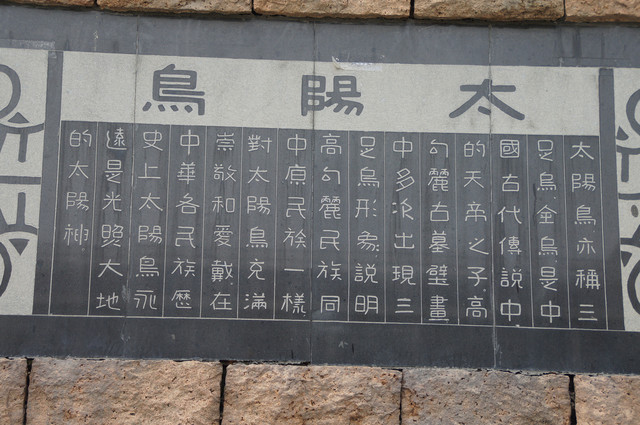 太陽鳥
太陽鳥亦稱三
足烏金烏是中
國古代傳説中
的天帝之子高
勾麗古墓壁畫
中多次出現三
足烏形象説明
高勾麗民族同
中原民族一樣
對太陽鳥充滿
崇敬和愛戴在
中華各民族歷
史上太陽鳥永
遠是光照大地
的太陽神